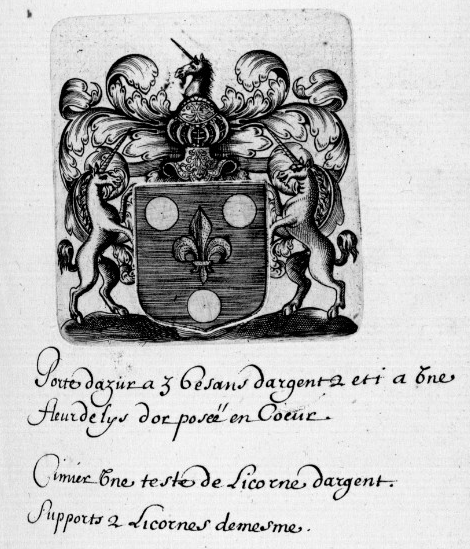 Porte dazur a 3 besans dargent 2 et 1 a vne
fleur de lys dor poseé en Coeur.
Cimier vne teste de Licorne dargent.
Supports 2 Licornes demesme.